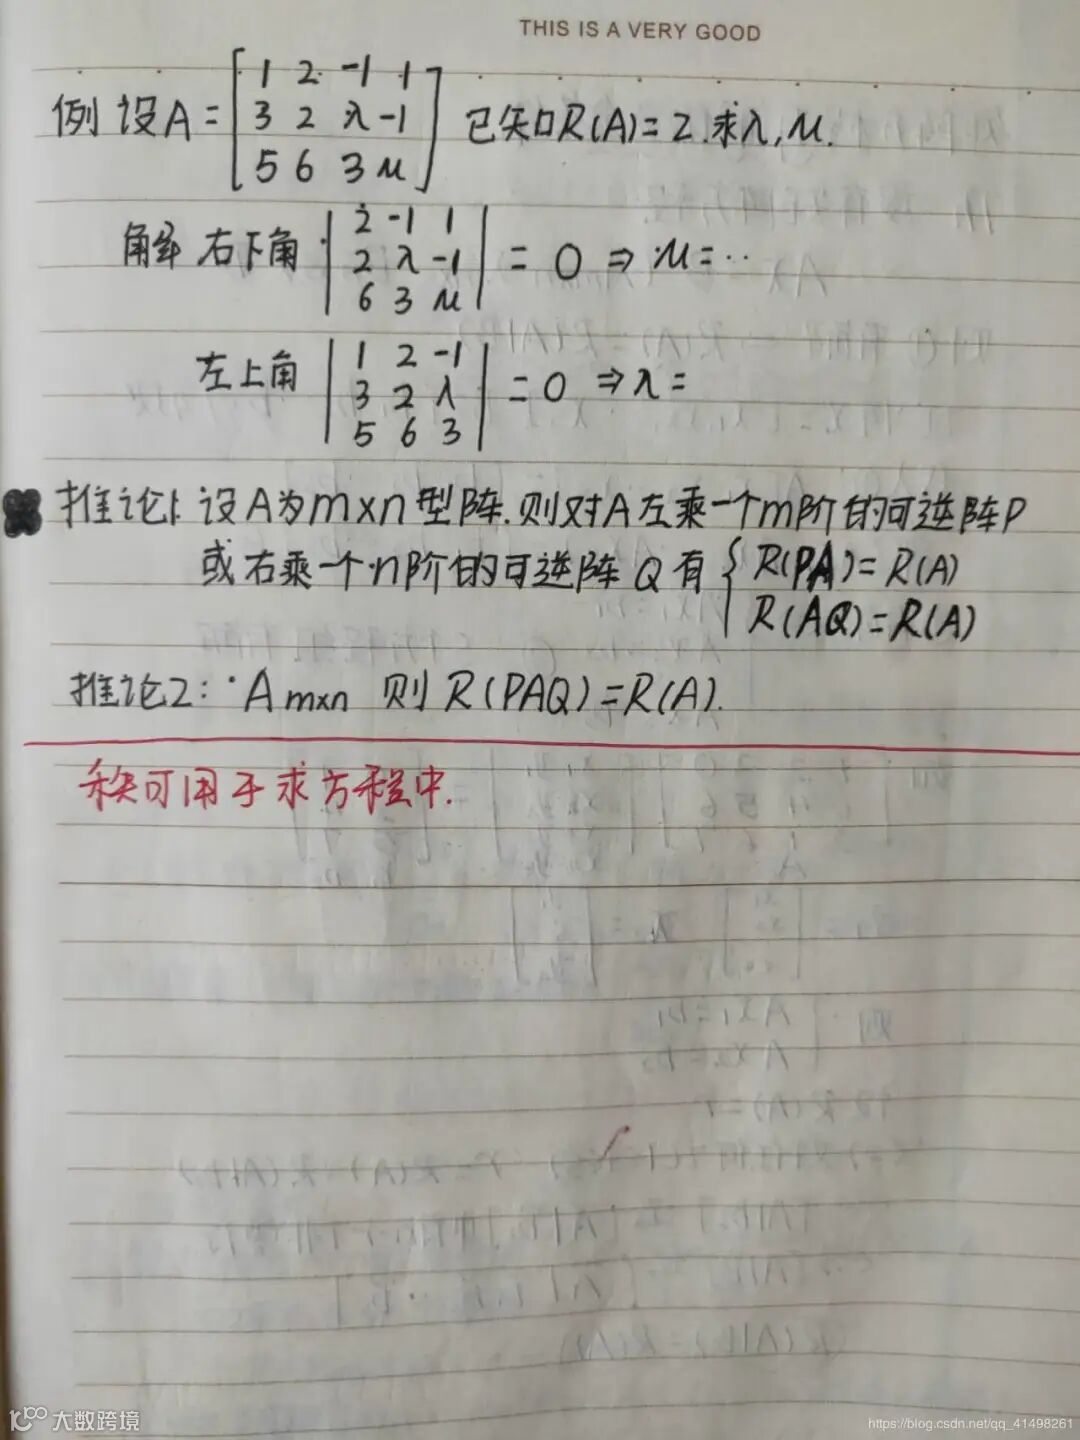 THIS IS A VERY GOOD
例 设A = [1 2 -1 1
3 2 λ -1
5 6 3 μ] 已知R(A)=2.求λ,μ.
解 右下角 |2 -1 1
2 λ -1
6 3 μ| = 0 ⇒ μ=··
左上角 |1 2 -1
3 2 λ
5 6 3| = 0 ⇒ λ=
推论1: 设A为m×n型阵.则对A左乘一个m阶的可逆阵P
或右乘一个n阶的可逆阵Q有 { R(PA)=R(A)
R(AQ)=R(A)
推论2: A m×n 则 R(PAQ)=R(A).
秩可用于求方程中.
大数跨境
https://blog.csdn.net/qq_41498261